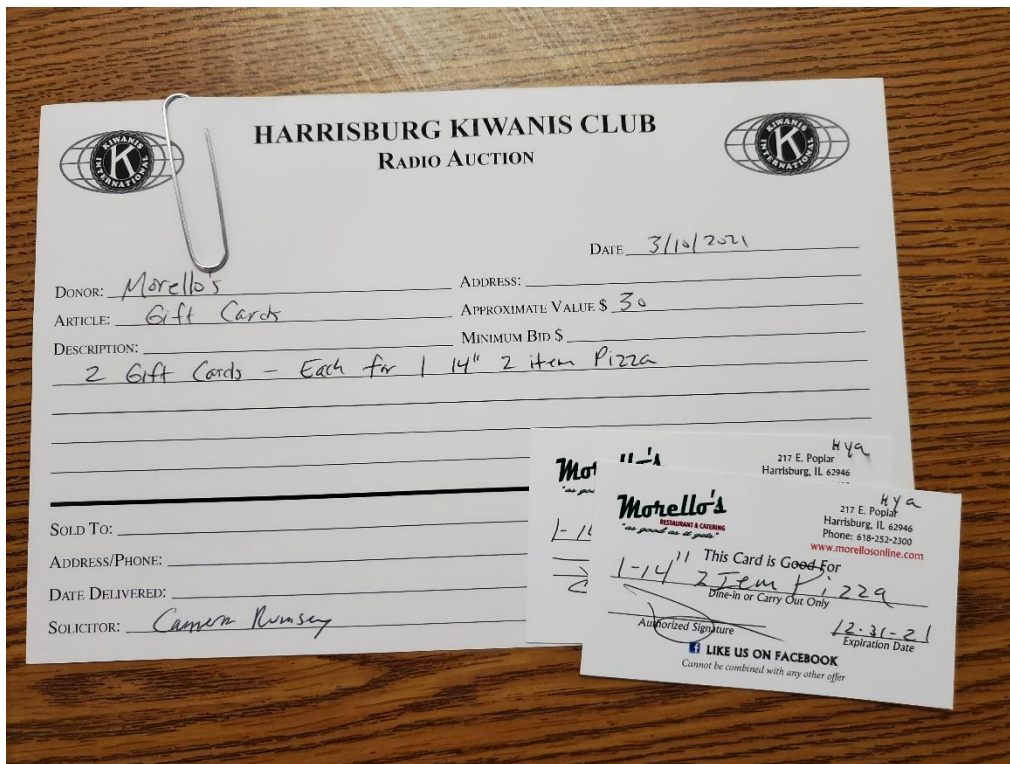 HARRISBURG KIWANIS CLUB
RADIO AUCTION
KIWANIS
K
INTERNATIONAL
KIWANIS
K
INTERNATIONAL
DATE 3/10/2021
DONOR: Morello's
ADDRESS:
ARTICLE: Gift Cards
APPROXIMATE VALUE $ 30
DESCRIPTION:
MINIMUM BID $
2 Gift Cards - Each for 1 14" 2 item Pizza
SOLD TO:
ADDRESS/PHONE:
DATE DELIVERED:
SOLICITOR: Rumsey
217 E. Poplar
Harrisburg, IL 62946
Morello's
RESTAURANT & CATERING
"as good as it gets"
217 E. Poplar
Harrisburg, IL 62946
Phone: 618-252-2300
www.morellosonline.com
This Card is Good For
1-14" 2 Item Pizza
Dine-in or Carry Out Only
Authorized Signature
12-31-21
Expiration Date
LIKE US ON FACEBOOK
Cannot be combined with any other offer